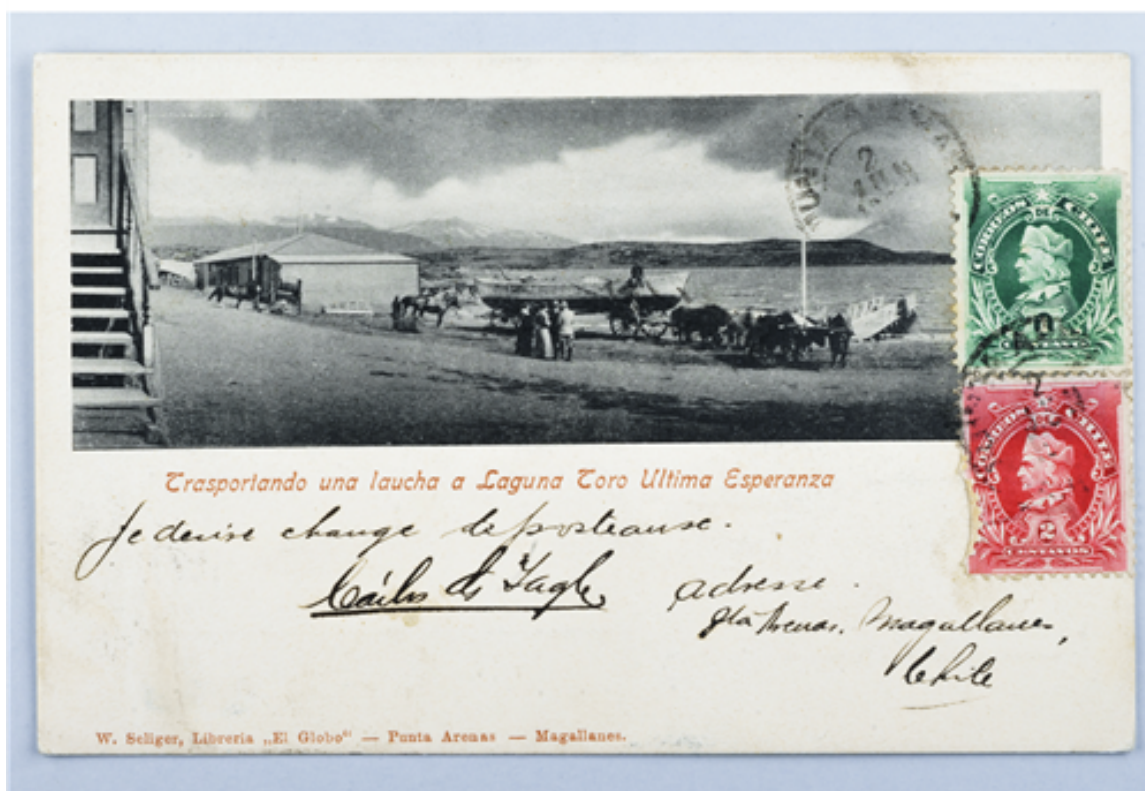 PUNTA ARENAS
2
JUN
CORREOS DE CHILE
CENTAVOS
CORREOS DE CHILE
2
CENTAVOS
Trasportando una laucha a Laguna Toro Ultima Esperanza
Je desire change de
adresse.
Pta Arenas. Magallanes,
Chile
W. Seliger, Libreria „El Globo“ — Punta Arenas — Magallanes.